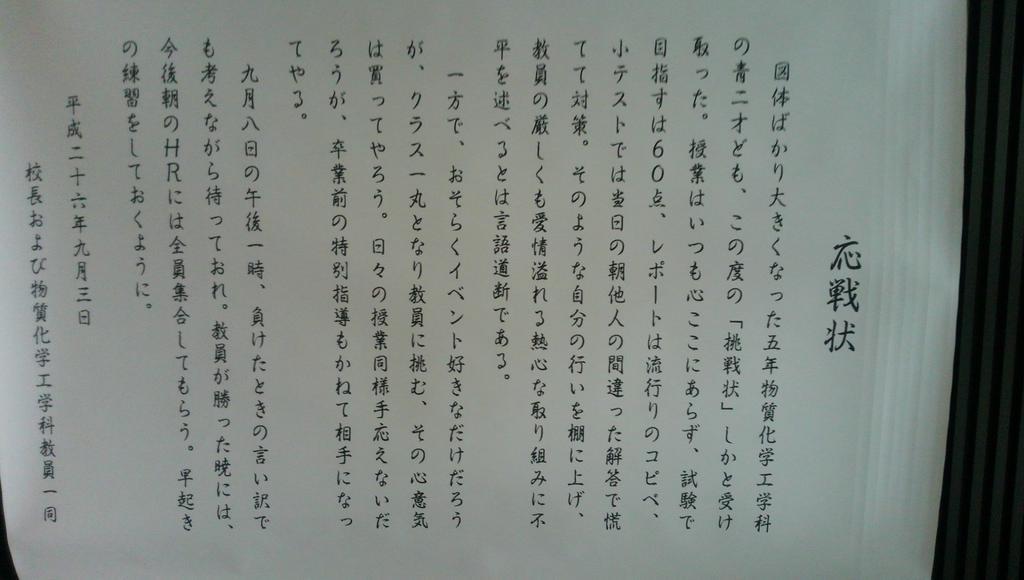 応戦状
図体ばかり大きくなった五年物質化学工学科
の青二才ども、この度の「挑戦状」しかと受け
取った。授業はいつも心ここにあらず、試験で
目指すは６０点、レポートは流行りのコピペ、
小テストでは当日の朝他人の間違った解答で慌
てて対策。そのような自分の行いを棚に上げ、
教員の厳しくも愛情溢れる熱心な取り組みに不
平を述べるとは言語道断である。
一方で、おそらくイベント好きなだけだろう
が、クラス一丸となり教員に挑む、その心意気
は買ってやろう。日々の授業同様手応えないだ
ろうが、卒業前の特別指導もかねて相手になっ
てやる。
九月八日の午後一時、負けたときの言い訳で
も考えながら待っておれ。教員が勝った暁には、
今後朝のＨＲには全員集合してもらう。早起き
の練習をしておくように。
平成二十六年九月三日
校長および物質化学工学科教員一同